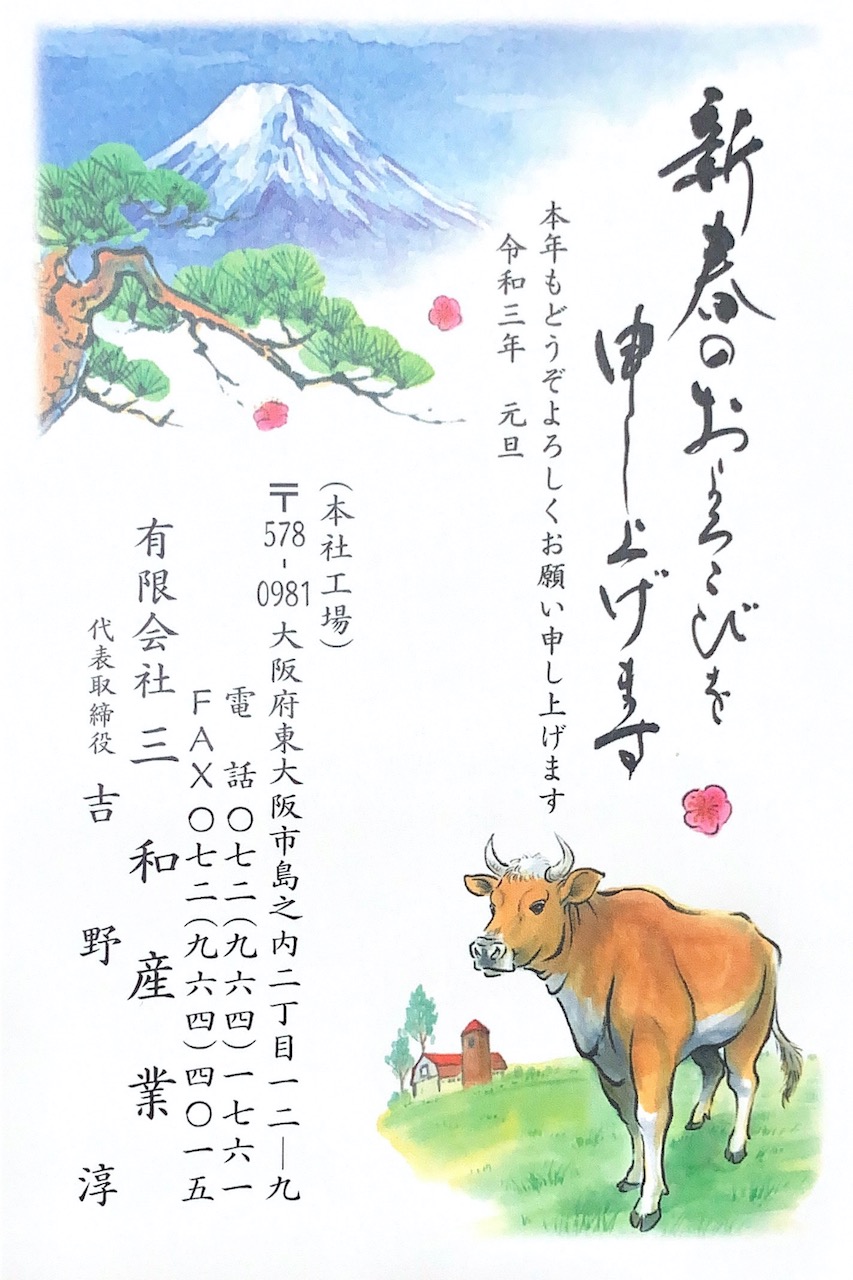 新春のおよろこびを
申し上げます
本年もどうぞよろしくお願い申し上げます
令和三年 元旦
(本社工場)
〒578-0981 大阪府東大阪市島之内二丁目一二―九
電 話 〇七二(九六四)一七六一
FAX 〇七二(九六四)四〇一五
有限会社 三和産業
代表取締役 吉野 淳